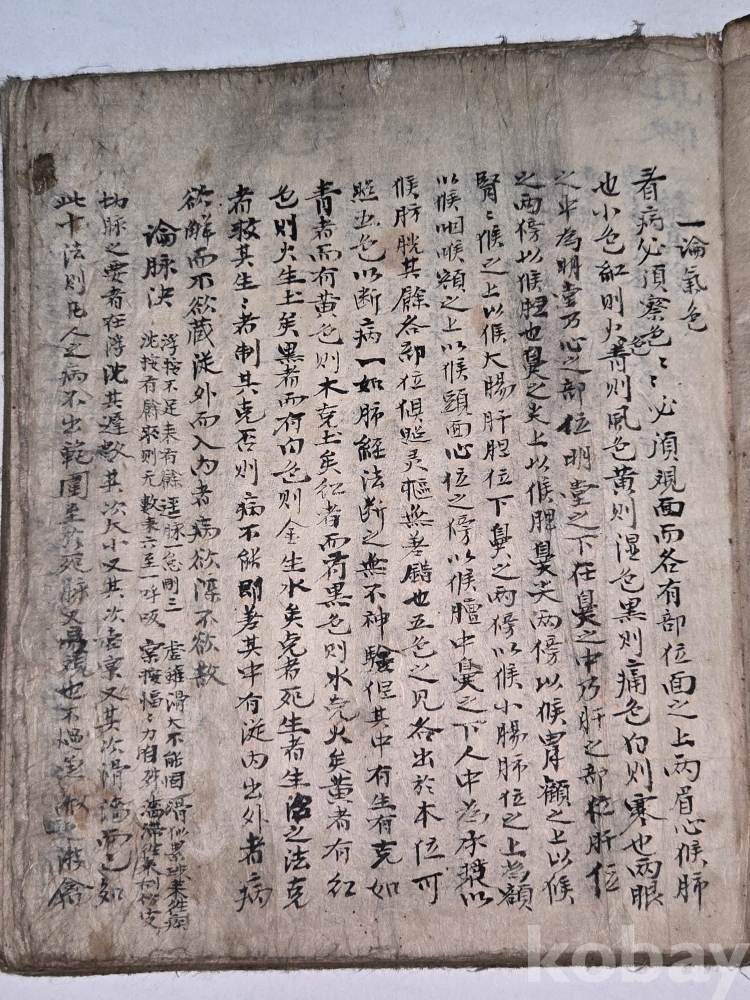 一論氣色
看病必須察色〻必須視面而各有部位面之上兩眉心候肺
也小色紅則火青則風色黃則濕色黑則痛色白則寒也兩眼
之中為明堂乃心之部位明堂之下在鼻之中乃肝之部位肝位
之兩傍以候胆也鼻之尖上以候脾鼻尖兩傍以候胃顴之上以候
腎〻候之上以候大腸肝胆位下鼻之兩傍以候小腸肺位之上為額
以候咽喉額之上以候頭面心位之傍以候膻中鼻之下人中為承漿以
候膀胱其餘各部位俱照灵樞無差錯也五色之見各出於本位可
照五色以断病一如肺經法断之無不神驗但其中有生有克如
青者而有黃色則木克土矣紅者而有黑色則水克火矣黃者有紅
色則火生土矣黑者而有白色則金生水矣克者死生者生治之法克
者救其生〻者制其克否則病不能即善其中有從內出外者病
欲解而不欲藏從外而入內者病欲深不欲散
論脉決
浮按不足来有餘 遲脉一息剛三 虛雖滑大不能固 滑似累珠来往疾
沈按有餘 則无 數来六至一呼吸 實按愊〻力自 濇滞往来刮竹皮
切脉之要者在浮沈其遲數其次大小又其次虛實又其次滑濇而已知
此十法則凡人之病不出範圍至於死脉又易 也不過